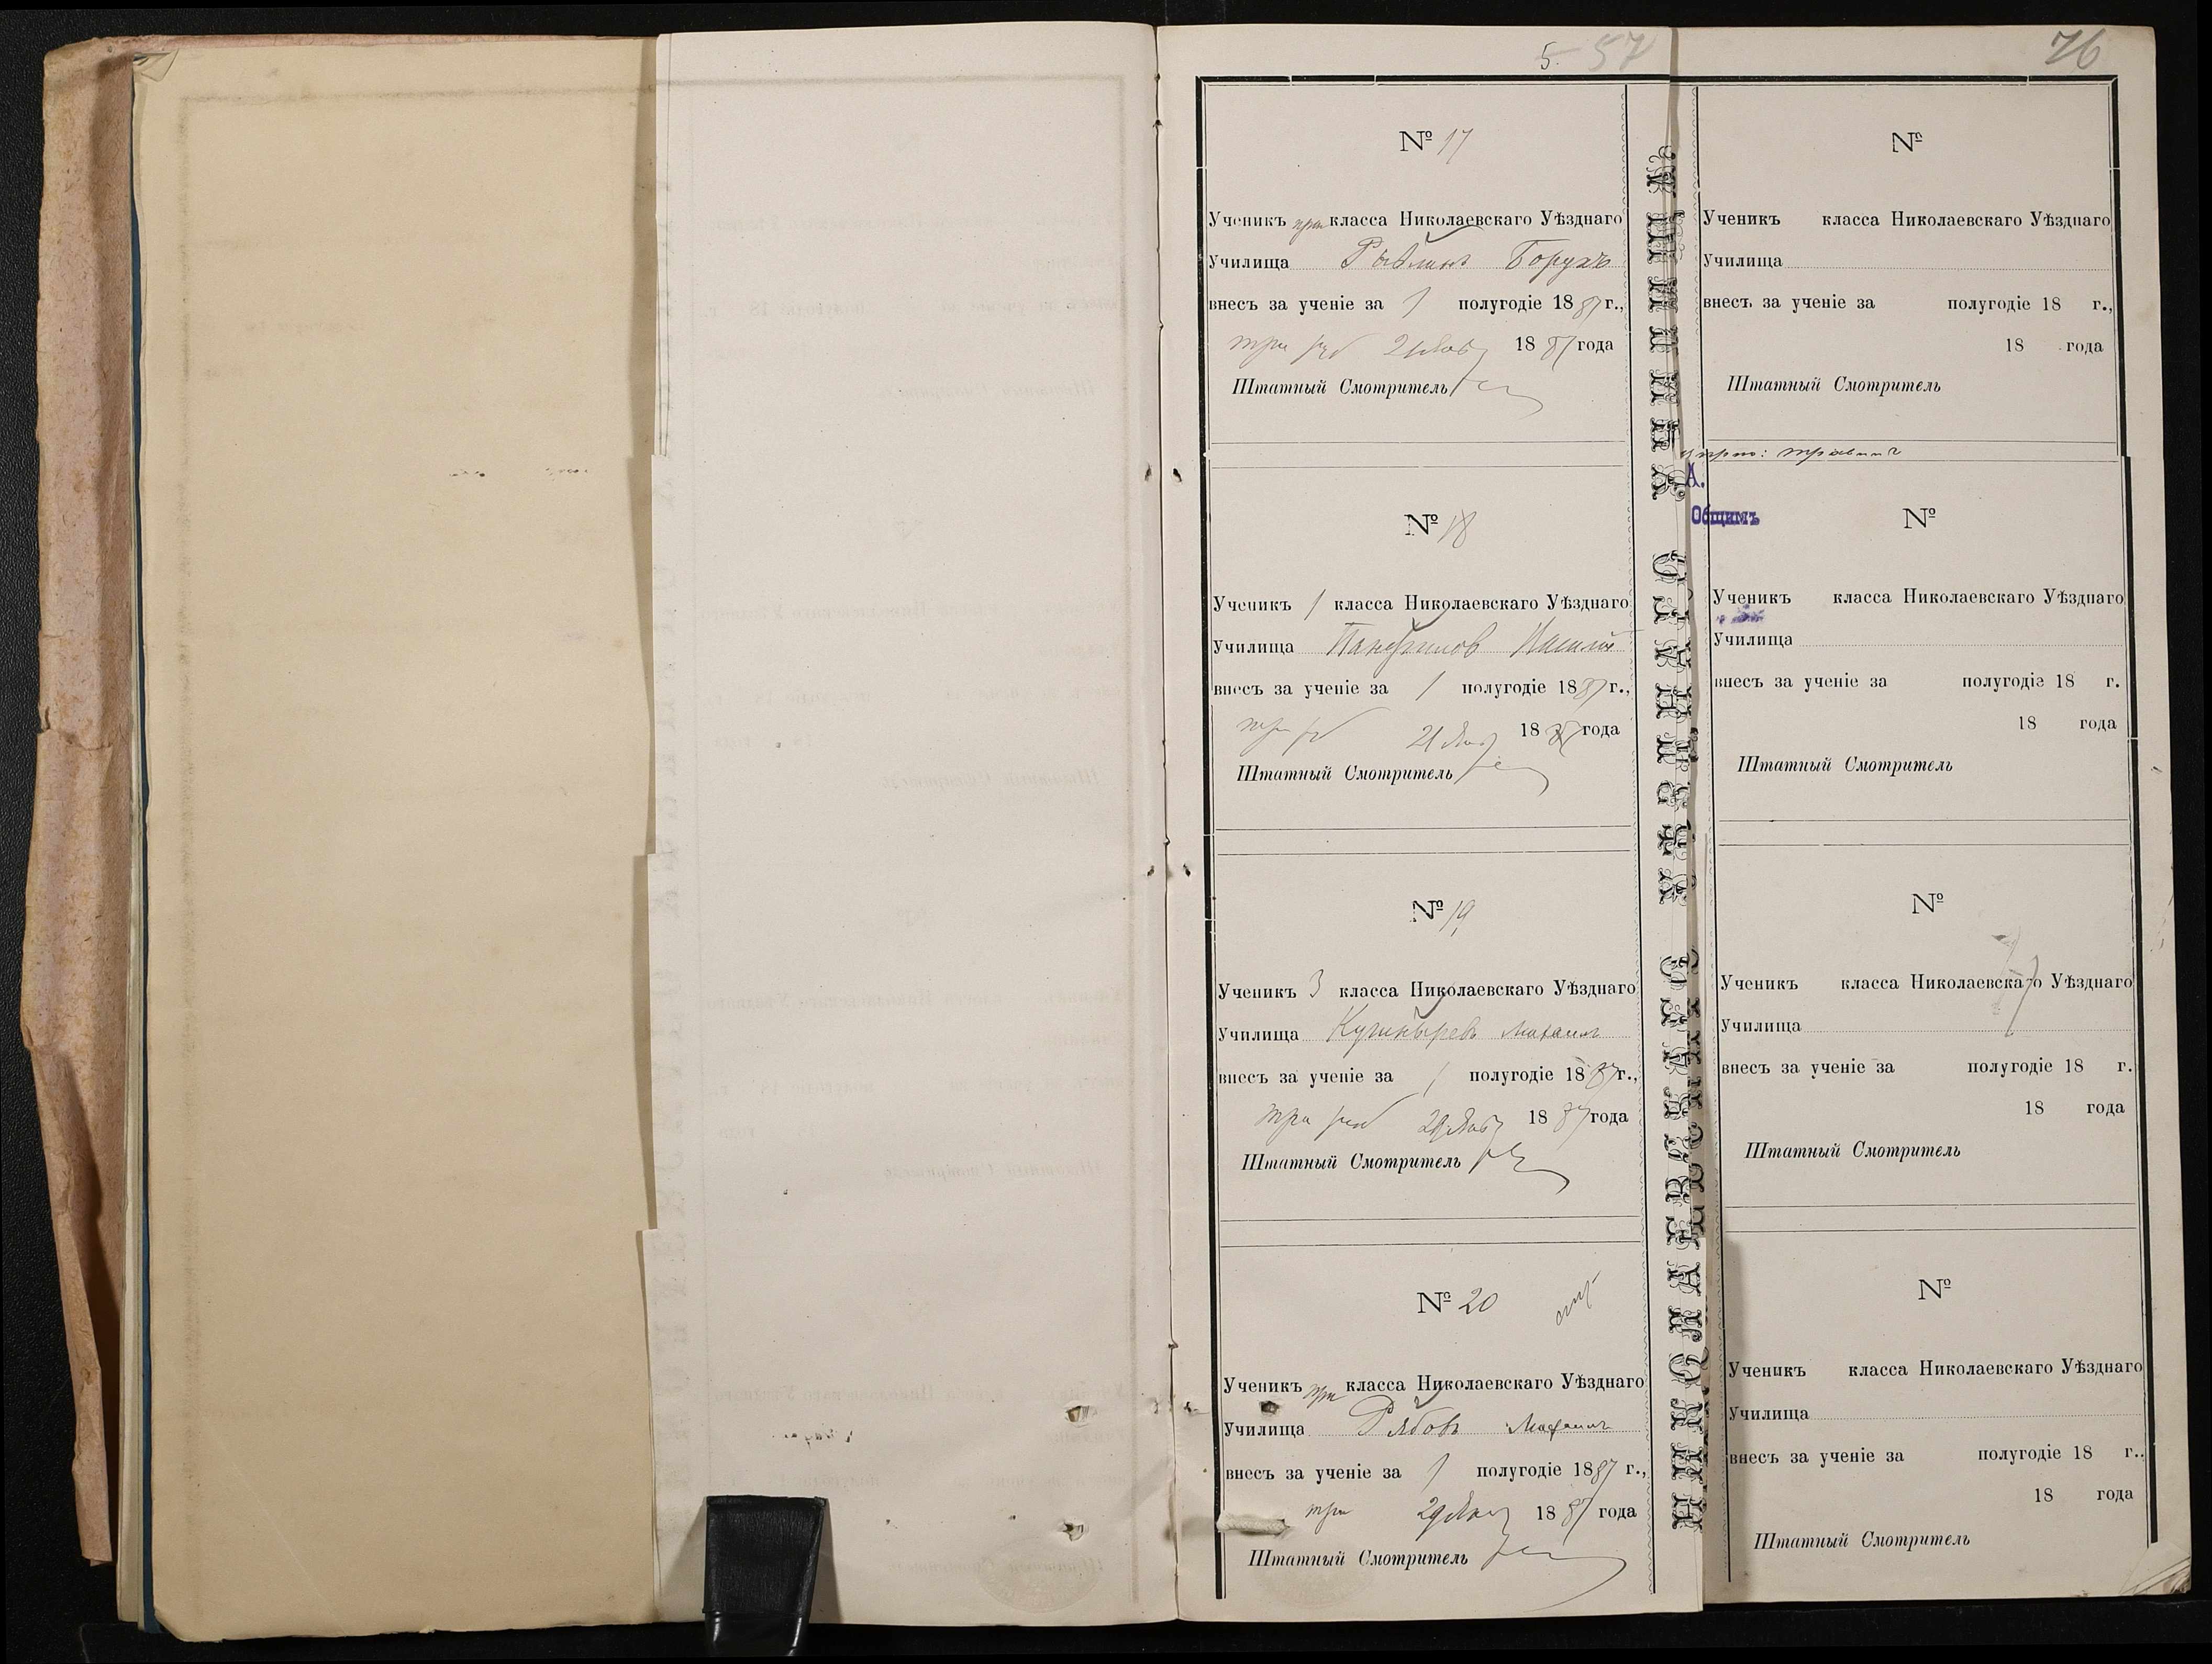 5. 57
№ 17
Ученикъ при класса Николаевскаго Уѣзднаго
Училища Рывлинъ Борухъ
внесъ за ученіе за 1 полугодіе 1887 г.,
три руб 21 1887 года
Штатный Смотритель
№ 18
Ученикъ 1 класса Николаевскаго Уѣзднаго
Училища Панфилов
внесъ за ученіе за 1 полугодіе 1887 г.,
три 21 1887 года
Штатный Смотритель
№ 19
Ученикъ 3 класса Николаевскаго Уѣзднаго
Училища Михаилъ
внесъ за ученіе за 1 полугодіе 1887 г.,
три руб 29 1887 года
Штатный Смотритель
№ 20
Ученикъ при класса Николаевскаго Уѣзднаго
Училища Рябовъ Михаилъ
внесъ за ученіе за 1 полугодіе 1887 г.,
три 29 1887 года
Штатный Смотритель
НИКОЛАЕВСКАГО
УЧИЛИЩА
76
№
Ученикъ класса Николаевскаго Уѣзднаго
Училища
внесъ за ученіе за полугодіе 18 г.,
18 года
Штатный Смотритель
А.
Общимъ
№
Ученикъ класса Николаевскаго Уѣзднаго
Училища
внесъ за ученіе за полугодіе 18 г.
18 года
Штатный Смотритель
№
Ученикъ класса Николаевскаго Уѣзднаго
Училища
внесъ за ученіе за полугодіе 18 г.
18 года
Штатный Смотритель
№
Ученикъ класса Николаевскаго Уѣзднаго
Училища
внесъ за ученіе за полугодіе 18 г.,
18 года
Штатный Смотритель